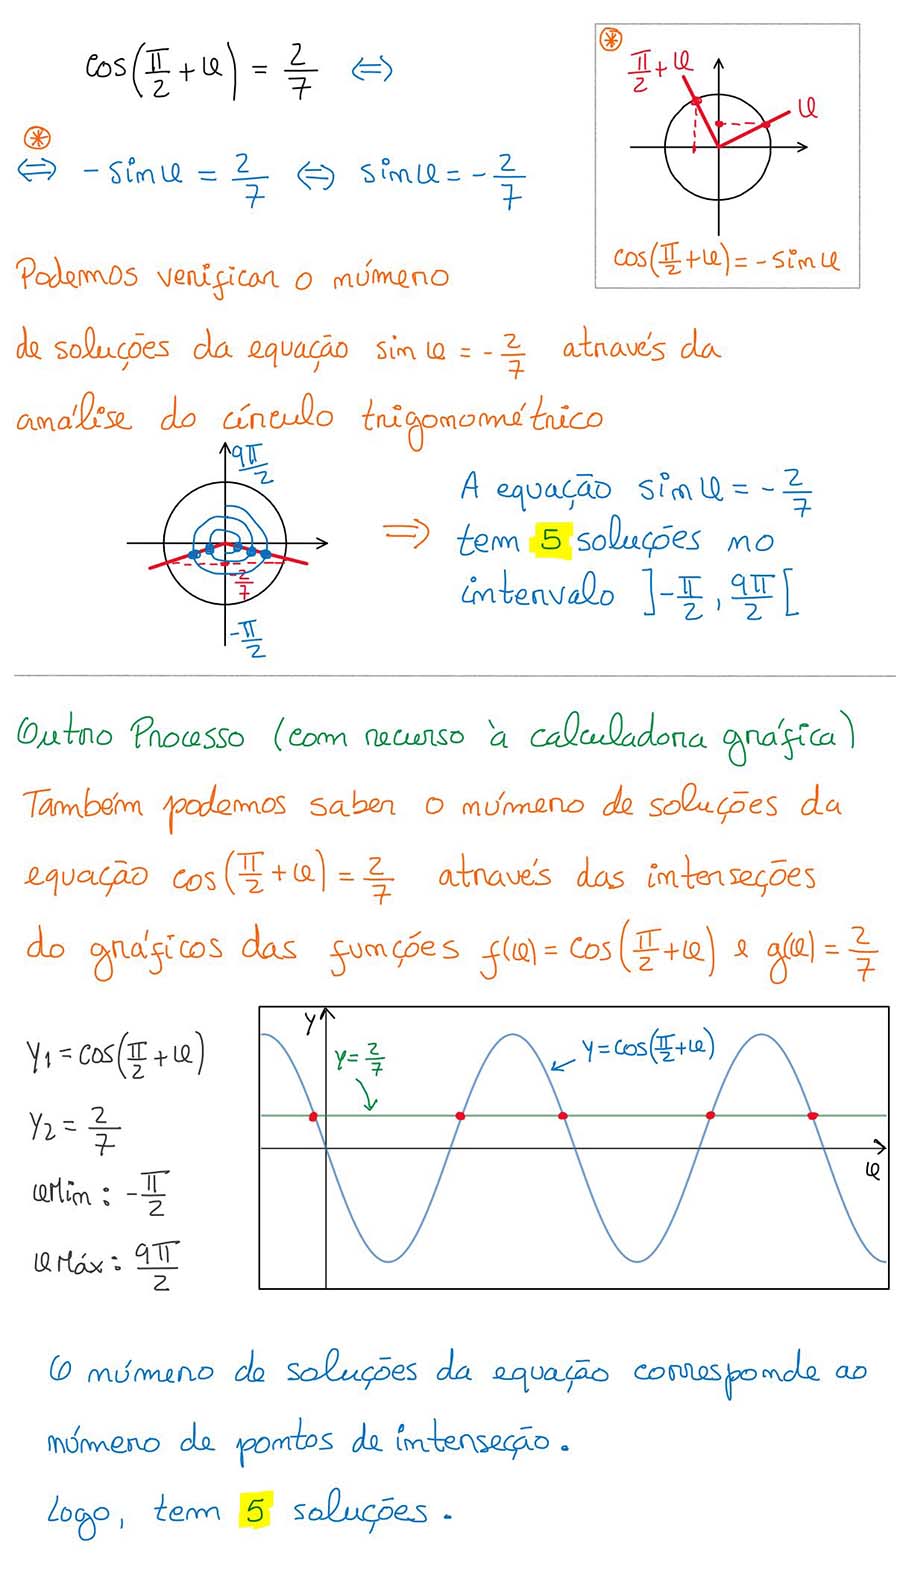 cos(π/2 + α) = 2/7 ⇔
⊛
⇔ - sin α = 2/7 ⇔ sin α = - 2/7
⊛
π/2 + α
α
cos(π/2 + α) = - sin α
Podemos verificar o número
de soluções da equação sin α = - 2/7 através da
análise do círculo trigonométrico
9π/2
-2/7
-π/2
⇒
A equação sin α = - 2/7
tem 5 soluções no
intervalo ]-π/2, 9π/2[
Outro Processo (com recurso à calculadora gráfica)
Também podemos saber o número de soluções da
equação cos(π/2 + α) = 2/7 através das interseções
do gráficos das funções f(α) = cos(π/2 + α) e g(α) = 2/7
Y1 = cos(π/2 + α)
Y2 = 2/7
αMin : -π/2
αMáx : 9π/2
y
y = 2/7
y = cos(π/2 + α)
α
O número de soluções da equação corresponde ao
número de pontos de interseção.
Logo, tem 5 soluções.